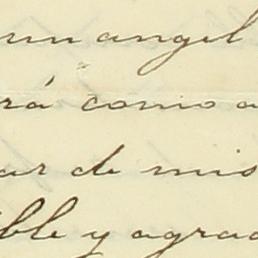 un angel
rá como a
ar de mis
ible y agrad